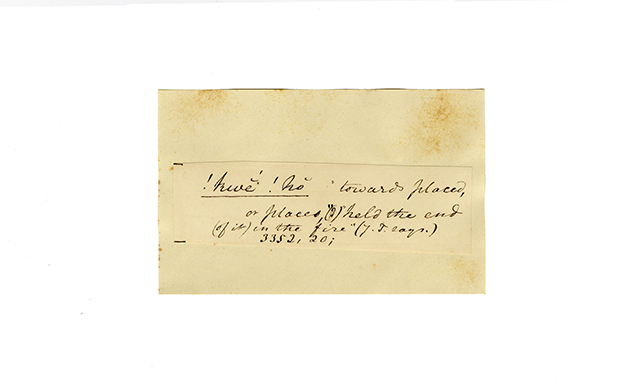 !kwĕ́ !hŏ "towards placed,
or places, (?) held the end
(of it) in the fire" (J.T. says.)
3352, 20;